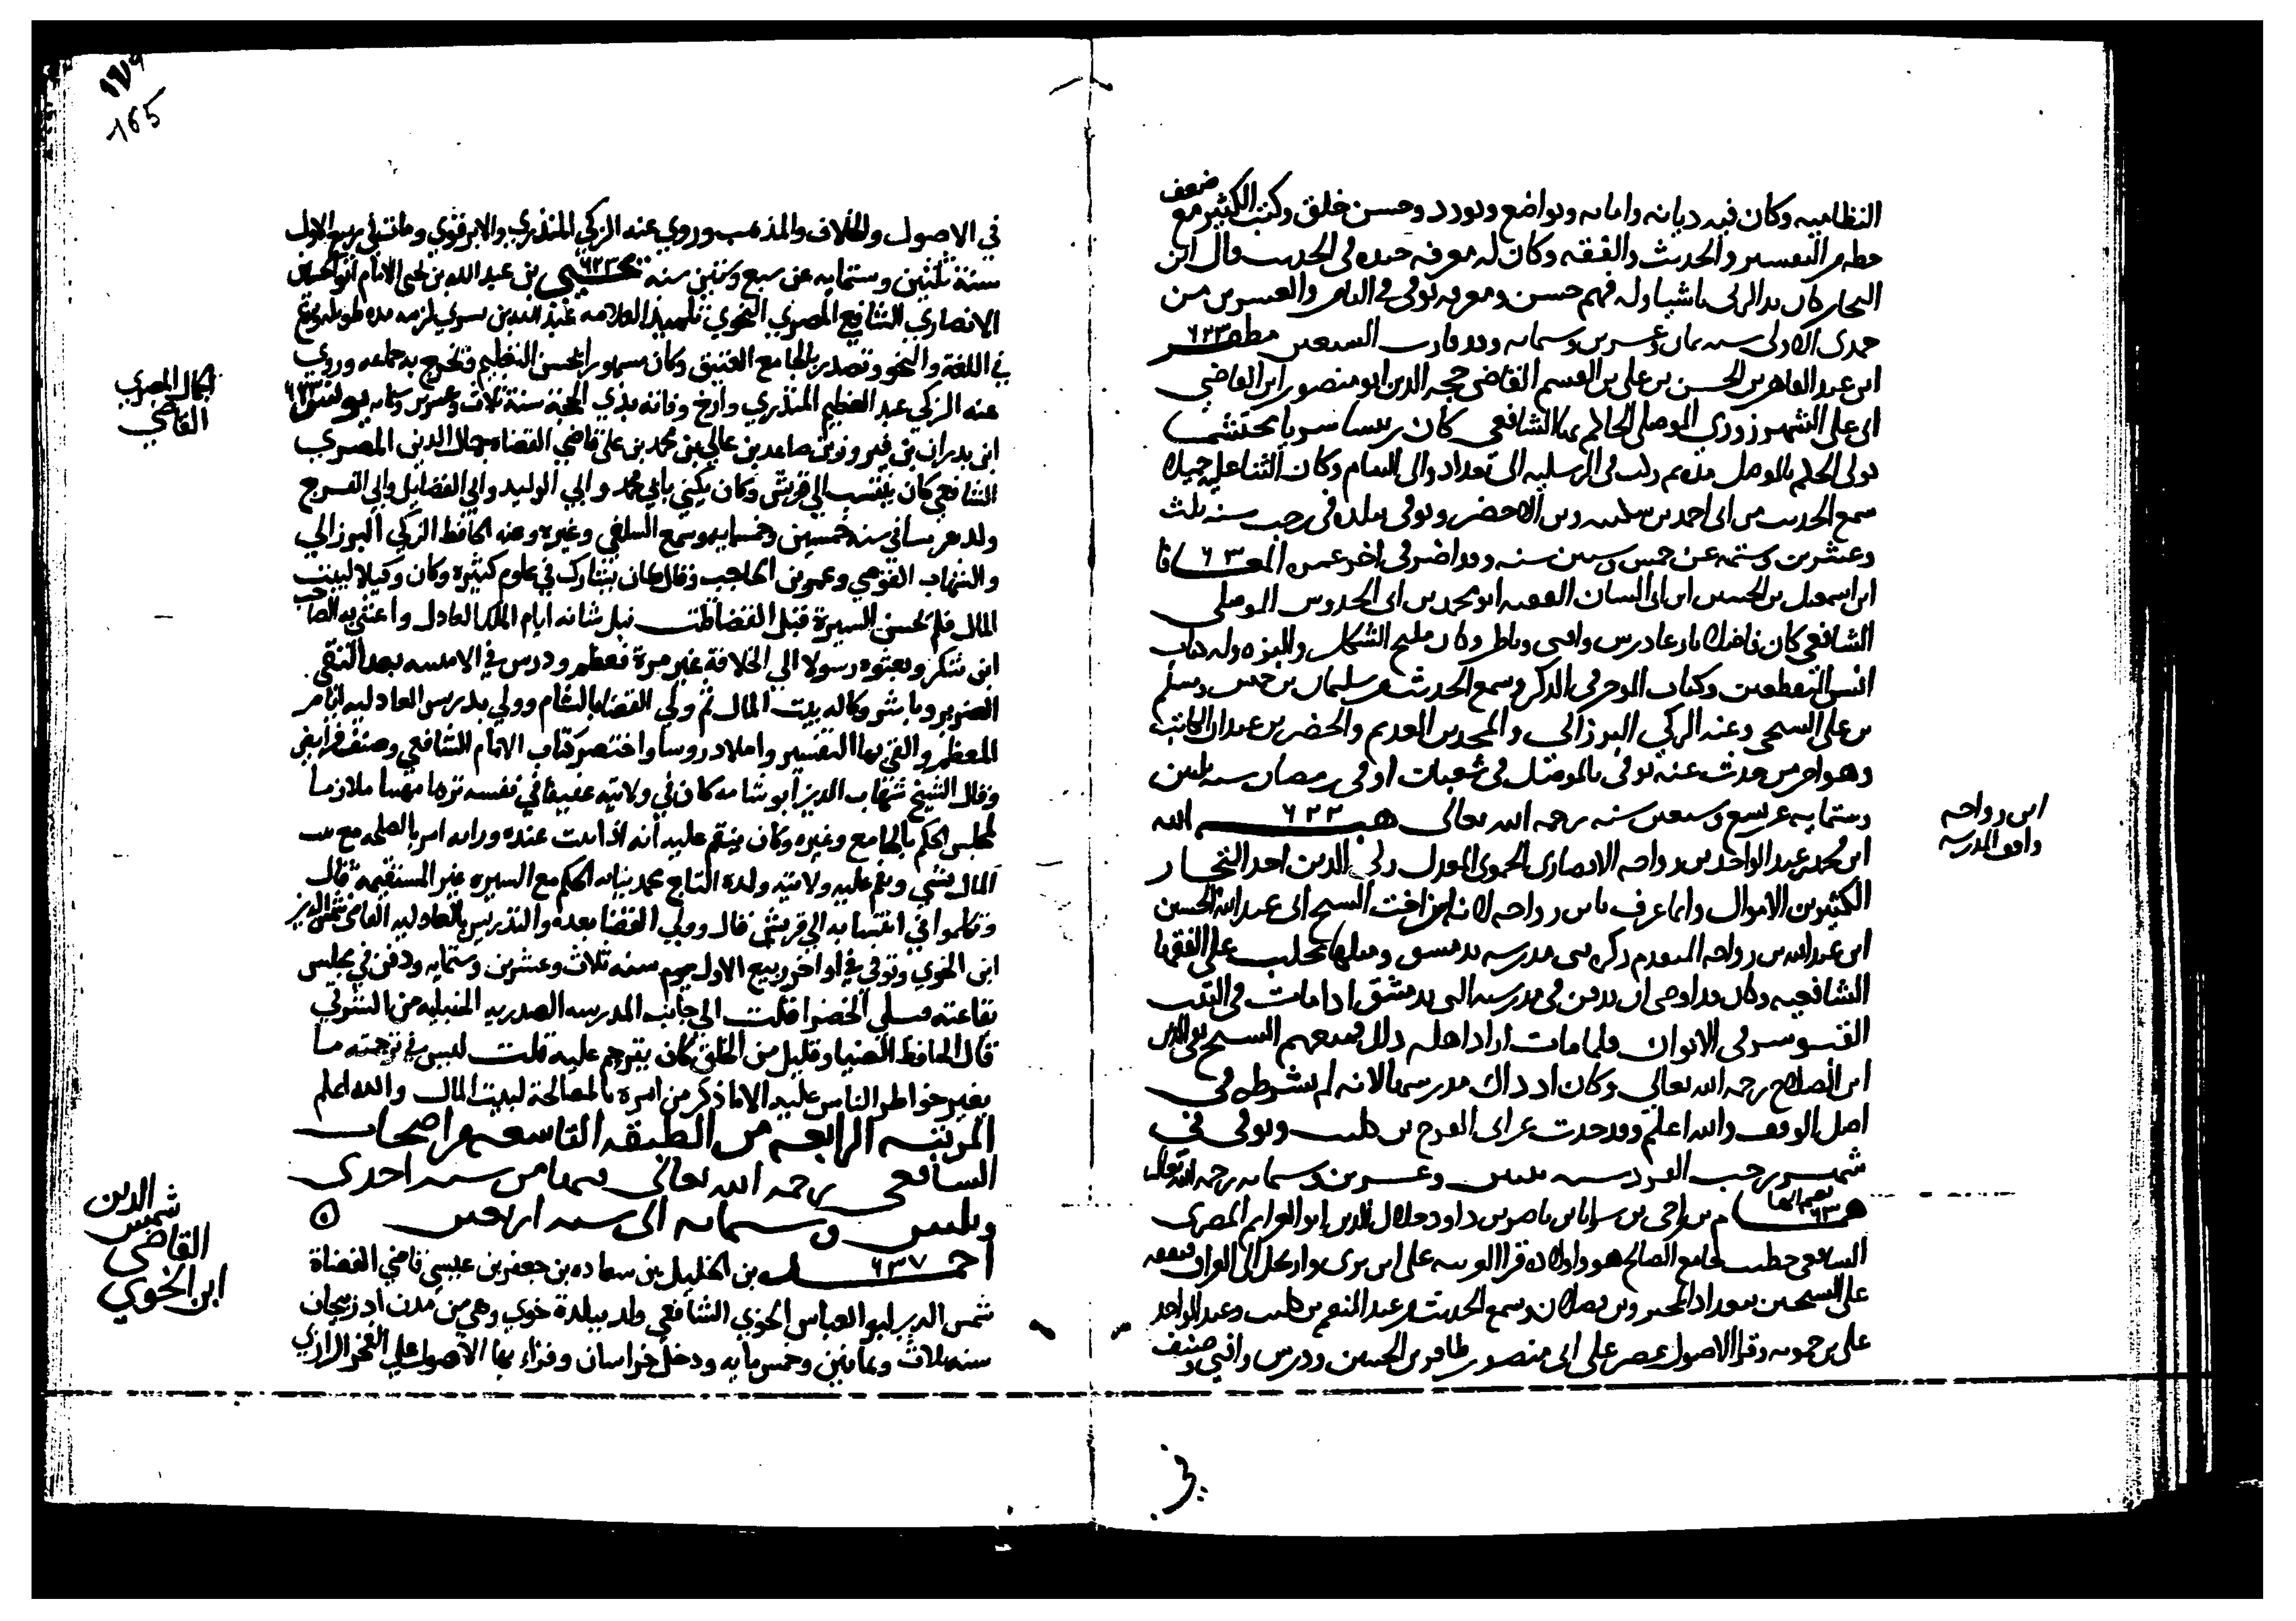 النظاميه وكان فيه ديانه وامانه وتواضع وتودد وحسن خلق وكتب الكثير مع ضعف
خطه من التفسير والحديث والفقه وكان له معرفه جيده في الحديث قال ابن
النجار كان يدا له فهم حسن ومعرفه توفي في الثامن والعشرين من
جمدى الاولى سنه ثمان وعشرين وستمايه وقد قارب السبعين مظفر ٦٢٣
ابن عبد القاهر بن الحسن بن علي بن القسم القاضي حجه الدين ابو منصور ابن القاضي
ابي علي الشهرزوري الموصلي الحاكم بها الشافعي كان رييسا سريا محتشما
تولى الحكم بالموصل مده في الرسليه الى بغداد والى الشام وكان الثنا عليه جميلا
سمع الحديث من ابي احمد بن سكينه وبن الاخضر وتوفي ببلده في رجب سنه ثلث
وعشرين وستمه عن خمس وستين سنه وقد اضر في اخر عمره المعافا ٦٣٠
ابن اسمعيل بن الحسين ابن ابي السنان الفقيه ابو محمد بن ابي الحدوس الموصلي
الشافعي كان فاضلا بارعا درس وافتى وناظر وكان مليح الشكل والبزه وله كتاب
انس المنقطعين وكتاب الموجز في الذكر وسمع الحديث من سليمان بن خميس ومسلم
بن علي السيحي وعنه الزكي البرزالي والمجد بن العديم والخضر بن عبدان الكاتب
وهو اخر من حدث عنه توفي بالموصل في شعبان او في رمضان سنه ثلثين
وستمايه عن تسع وسبعين سنه رحمه الله تعالى هبه ٦٢٣ الله
ابن محمد بن عبد الواحد بن رواحه الانصاري الحموي المعدل زكي الدين احد التجار
الكثيرين الاموال وانما عرف بابن رواحه لانه ابن اخت الشيخ ابي عبد الله الحسين
ابن عبد الله بن رواحه المتقدم ذكره بنى مدرسه بدمشق ومثلها بحلب على الفقها
الشافعيه وكان قد اوصى ان يدفن في مدرسته التي بدمشق اذا مات في البيت
القبو شرقي الايوان فلما مات اراد اهله ذلك فمنعهم الشيخ تقي الدين
ابن الصلاح رحمه الله تعالى وكان اذ ذاك مدرسها لانه لم يشرطه في
اصل الوقف والله اعلم وقد حدث عن ابي الفرج بن كليب وتوفي في
شهر رجب الفرد سنه ثلث وعشرين وستمايه رحمه الله تعالى
همام ٦٣٠ بن راجي بن سرايا بن ناصر بن داود جلال الدين ابو العزايم المصري
الشافعي خطيب جامع الصالح هو واولاده قرا العربيه على ابن بري وارتحل الى العراق فتفقه
على الشيخين ببغداد المجير وبن فضلان وسمع الحديث من عبد المنعم بن كليب وعبد الواحد
علي بن حمويه وقرا الاصول بمصر على ابي منصور ظافر بن الحسين ودرس وافتى وصنف
ابن رواحه
واقف المدرسه
في
١٧٩
165
في الاصول والخلاف والمذهب وروي عنه الزكي المنذري والابرقوي ومات في ربيع الاول
سنة ثلثين وستمايه عن سبع وسنين سنه يحيى ٦٢٣ بن عبد الله بن يحيى الامام ابو الحسين
الانصاري الشافعي المصري النحوي تلميذ العلامه عبد الله بن بري لزمه مده طويله وبرع
في اللغة والنحو وتصدر بالجامع العتيق وكان مشهورا بحسن التعليم وتخرج به جماعه وروي
عنه الزكي عبد العظيم المنذري وارخ وفاته بذي الحجة سنة ثلاث وعشرين وستمايه يونس ٦٢٣
ابن بدران بن فيروز بن صاعد بن عالي بن محمد بن علي قاضي القضاه جمال الدين المصري
الشافعي كان ينتسب الي قريش وكان يكني بابي محمد وابي الوليد وابي الفضايل وابي الفرج
ولد في سنه خمسين وخمسمايه وسمع السلفي وغيره وعنه الحافظ الزكي البرزالي
والشهاب القوصي وعمر بن الحاجب وقال كان يشارك في علوم كثيره وكان وكيلا لبيت
المال فلم يحسن السيرة قبل القضا قلت نبل شانه ايام الملك العادل واعتني به الصاحب
ابن شكر وبعثوه رسولا الي الخلافة غير مرة فعظم ودرس في الامينيه بعد التقي
الضرير وباشر وكاله بيت المال ثم ولي القضا بالشام وولي تدريس العادليه ايام
المعظم والقي بها التفسير واملا دروسا واختصر كتاب الام للشافعي وصنف فرايض
وقال الشيخ شهاب الدين ابو شامه كان في ولايته عفيفا في نفسه نزها مهيبا ملازما
لمجلس الحكم بالجامع وغيره وكان ينقم عليه انه اذا ثبت عنده وراثه امر بالصلح مع بيت
المال بشي ونقم عليه ولايته ولده التاج محمد نيابه الحكم مع السيره غير المستقيمه قال
وتكلموا في انتسابه الي قريش قال وولي القضا بعده والتدريس بالعادليه القاضي شمس الدين
ابن الخوي وتوفي في اواخر ربيع الاول سنه ثلاث وعشرين وستمايه ودفن في مجلس
بقاعته قبلي الخضرا قلت الي جانب المدرسه الصدريه الحنبليه من الشرق
قال الحافظ الضيا وقليل من الخلق كان يترحم عليه قلت ليس في ترجمته ما
يغير خواطر الناس عليه الا ما ذكر من امره بالمصالحة لبيت المال والله اعلم
المرتبه الرابعه من الطبقه التاسعه من اصحاب
الشافعي رحمه الله تعالى فيها من سنه احدى
وثلثين وستمايه الى سنه اربعين
احمد ٦٣٧ بن الخليل بن سعاده بن جعفر بن عيسي قاضي القضاة
شمس الدين ابو العباس الخوي الشافعي ولد ببلدة خوي وهي من مدن اذربيجان
سنه ثلاث وثمانين وخمسمايه ودخل خراسان وقراء بها الاصول علي الفخر الرازي
الجمال المصري
القاضي
شمس الدين
القاضي
ابن الخوي